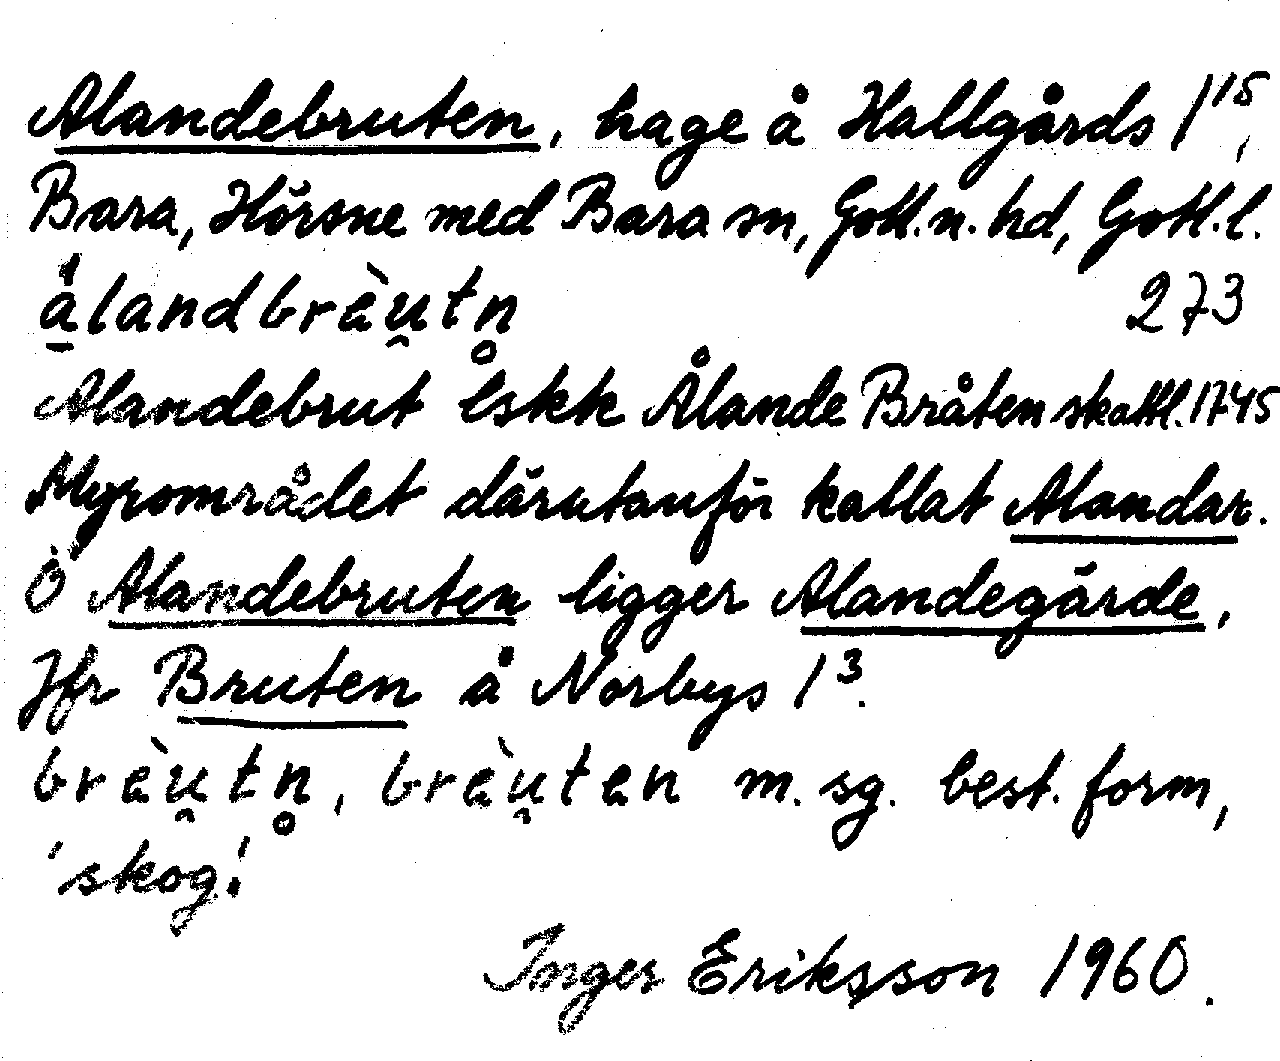 Alandebruten, hage å Hallgårds 1¹⁵,
Bara, Hörsne med Bara sn, Gotl. n. hd, Gotl. l.
ålandbrèu̯tn̥ 273
Alandebrut lskk Ålande Bråten skattl. 1745
Myrområdet därutanför kallat Alandar.
Ö Alandebruten ligger Alandegärde,
Jfr Bruten å Norbys 1³.
brèu̯tn̥, brèu̯ten m. sg. best. form,
'skog'.
Inger Eriksson 1960.